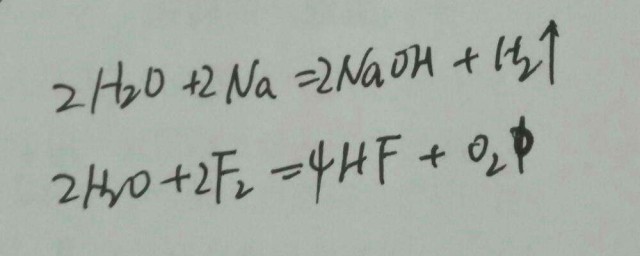 2H₂O+2Na=2NaOH+H₂↑
2H₂O+2F₂=4HF+O₂